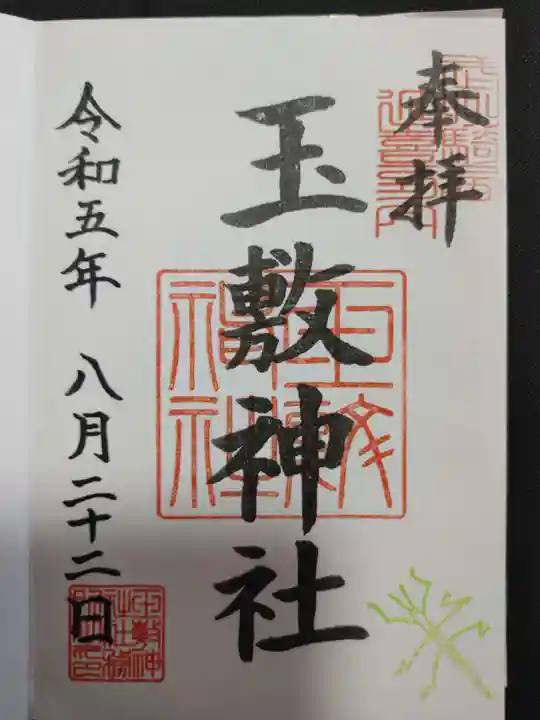 奉拝
玉敷神社
令和五年 八月二十二日
玉敷神社